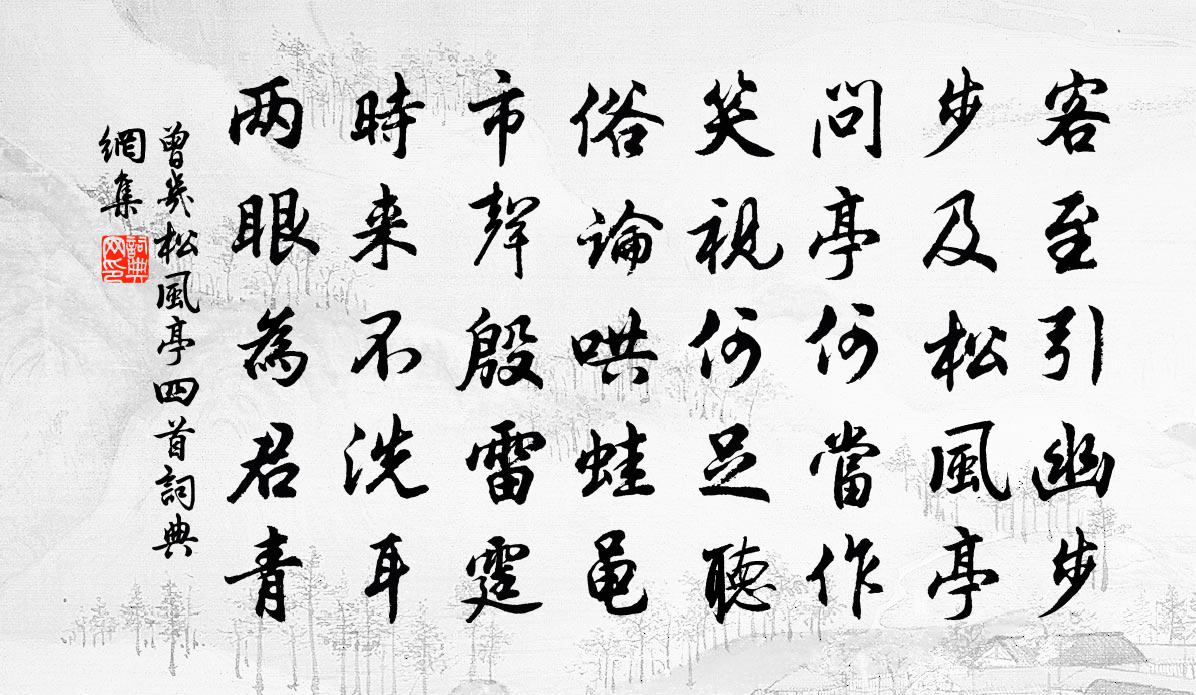 客至引幽步
步及松風亭
問亭何當作
笑視何足聽
俗論哄蛙黽
市聲殷雷霆
時来不洗耳
两眼為君青
曾幾松風亭四首詞典
網集
詞典
网印